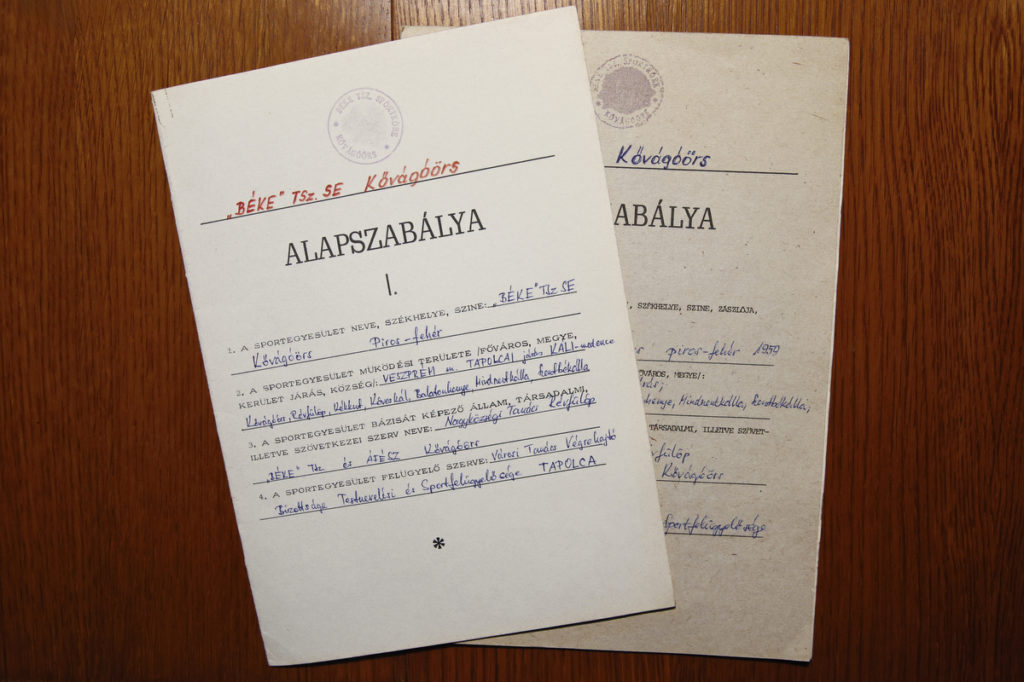 BÉKE TSZ. SPORTKÖRE
* KŐVÁGÓÖRS *
„BÉKE" TSz. SE Kővágóörs
ALAPSZABÁLYA
I.
1. A SPORTEGYESÜLET NEVE, SZÉKHELYE, SZINE: „BÉKE" TSz SE
Kővágóörs Piros-fehér
2. A SPORTEGYESÜLET MÜKÖDÉSI TERÜLETE /FŐVÁROS, MEGYE,
KERÜLET JÁRÁS, KÖZSÉG/: VESZPRÉM m. TAPOLCAI járás KÁLI-medence
Kővágóörs, Révfülöp, Kékkut, Köveskál, Balatonhenye, Mindszentkálla, Szentbékkálla
3. A SPORTEGYESÜLET BÁZISÁT KÉPEZŐ ÁLLAMI, TÁRSADALMI,
ILLETVE SZÖVETKEZEI SZERV NEVE: Nagyközségi Tanács Révfülöp
„BÉKE" Tsz és ÁFÉSZ Kővágóörs
4. A SPORTEGYESÜLET FELÜGYELŐ SZERVE: Városi Tanács Végrehajtó
Bizottsága Testnevelési és Sportfelügyelősége TAPOLCA
*
BÉKE TSZ. SPORTKÖRE
* KŐVÁGÓÖRS *
Kővágóörs
ABÁLYA
, SZÉKHELYE, SZINE, ZÁSZLÓJA,
piros-fehér 1959
VÁROS, MEGYE/:
henye, Mindszentkálla, Szentbékkálla,
TÁRSADALMI, ILLETVE SZÖVET-
fülöp
Kővágóörs
Sportfelügyelősége